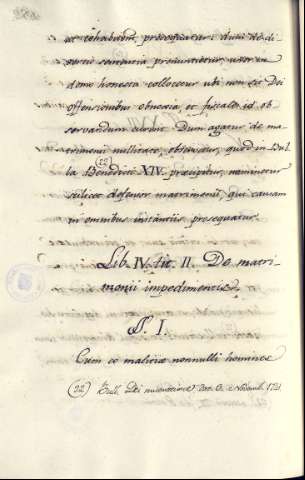 et cohabitent, prosequatur: dum de di-
vortio sententia pronuntietur, uxor in
domo honesta collocetur ubi non sit Dei
offensionibus obnoxia, et fiscales id ob
servandum curent. Dum agatur de ma-
trimonii nullitate, observetur, quod in Bul
la (22) Benedicti XIV. præcipitur, nominetur
scilicet defensor matrimonii, qui causam
in omnibus instantiis prosequatur.
Lib. IV. tit. II. De matri-
monii impedimentis
§. I.
Cum ex malitia nonnulli homines
(22) Bull. Dei miseratione Dat. 3. Novemb. 1741.